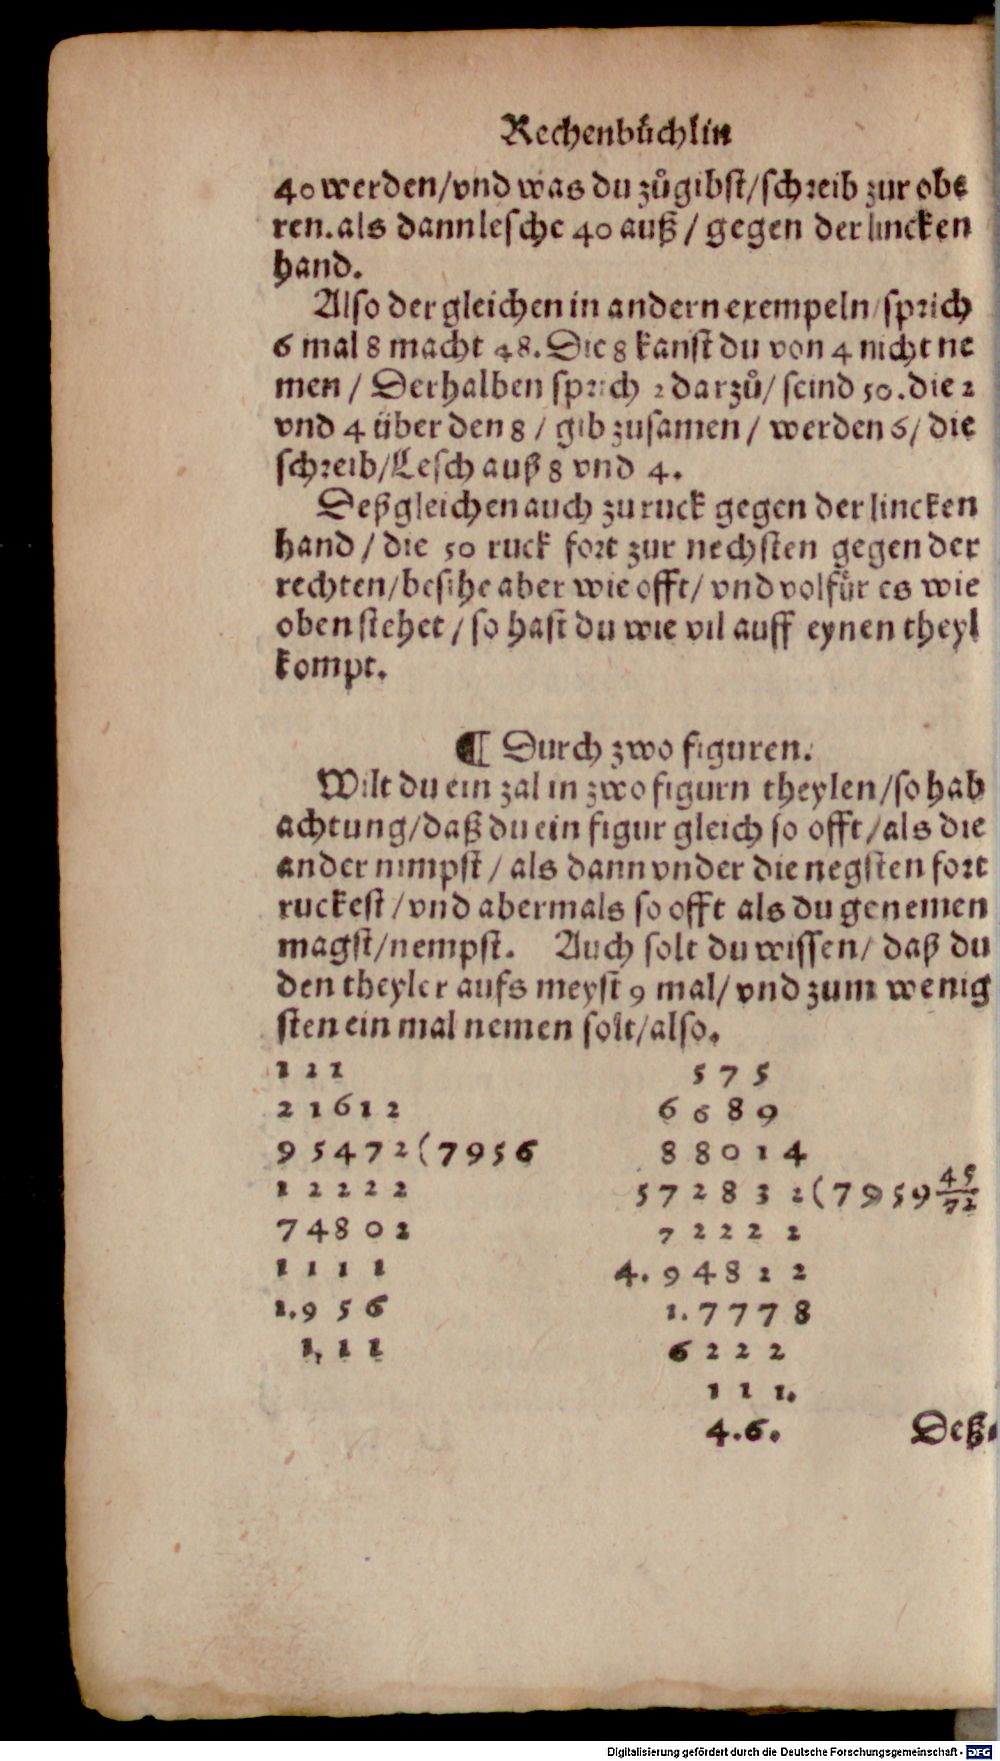 Rechenbüchlin
40 werden/vnd was du zůgibst/schreib zur obe
ren.als dann lesche 40 auß / gegen der lincken
hand.
Also der gleichen in andern exempeln/sprich
6 mal 8 macht 48. Die 8 kanst du von 4 nicht ne
men / Derhalben sprich 2 darzů/ seind 50.die 2
vnd 4 über den 8 / gib zusamen / werden 6/ die
schreib/Lesch auß 8 vnd 4.
Deßgleichen auch zu ruck gegen der lincken
hand / die 50 ruck fort zur nechsten gegen der
rechten/besihe aber wie offt/ vnd volfür es wie
oben stehet / so hast du wie vil auff eynen theyl
kompt.
¶ Durch zwo figuren.
Wilt du ein zal in zwo figurn theylen/so hab
achtung/daß du ein figur gleich so offt/als die
ander nimpst / als dann vnder die negsten fort
ruckest/vnd abermals so offt als du genemen
magst/nempst. Auch solt du wissen/ daß du
den theyler aufs meyst 9 mal/ vnd zum wenig
sten ein mal nemen solt/also.
1 2 1
2 1 6 1 2
9 5 4 7 2 ( 7 9 5 6
1 2 2 2 2
7 4 8 0 2
1 1 1 1
1.9 5 6
1. 1 1
5 7 5
6 6 8 9
8 8 0 1 4
5 7 2 8 3 2 ( 7 9 5 9 45/72
7 2 2 2 2
4. 9 4 8 2 2
1. 7 7 7 8
6 2 2 2
1 1 1.
4.6.
Deß-
Digitalisierung gefördert durch die Deutsche Forschungsgemeinschaft - DFG